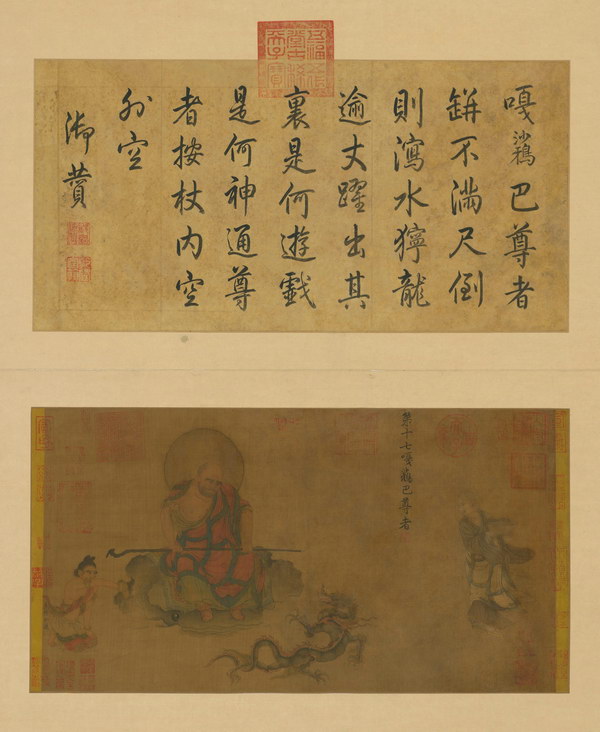 嘎沙鴉巴尊者
缾不滿尺倒
則瀉水獰龍
逾丈躍出其
裏是何遊戲
是何神通尊
者按杖內空
外空
御贊
第十七嘎沙鴉巴尊者